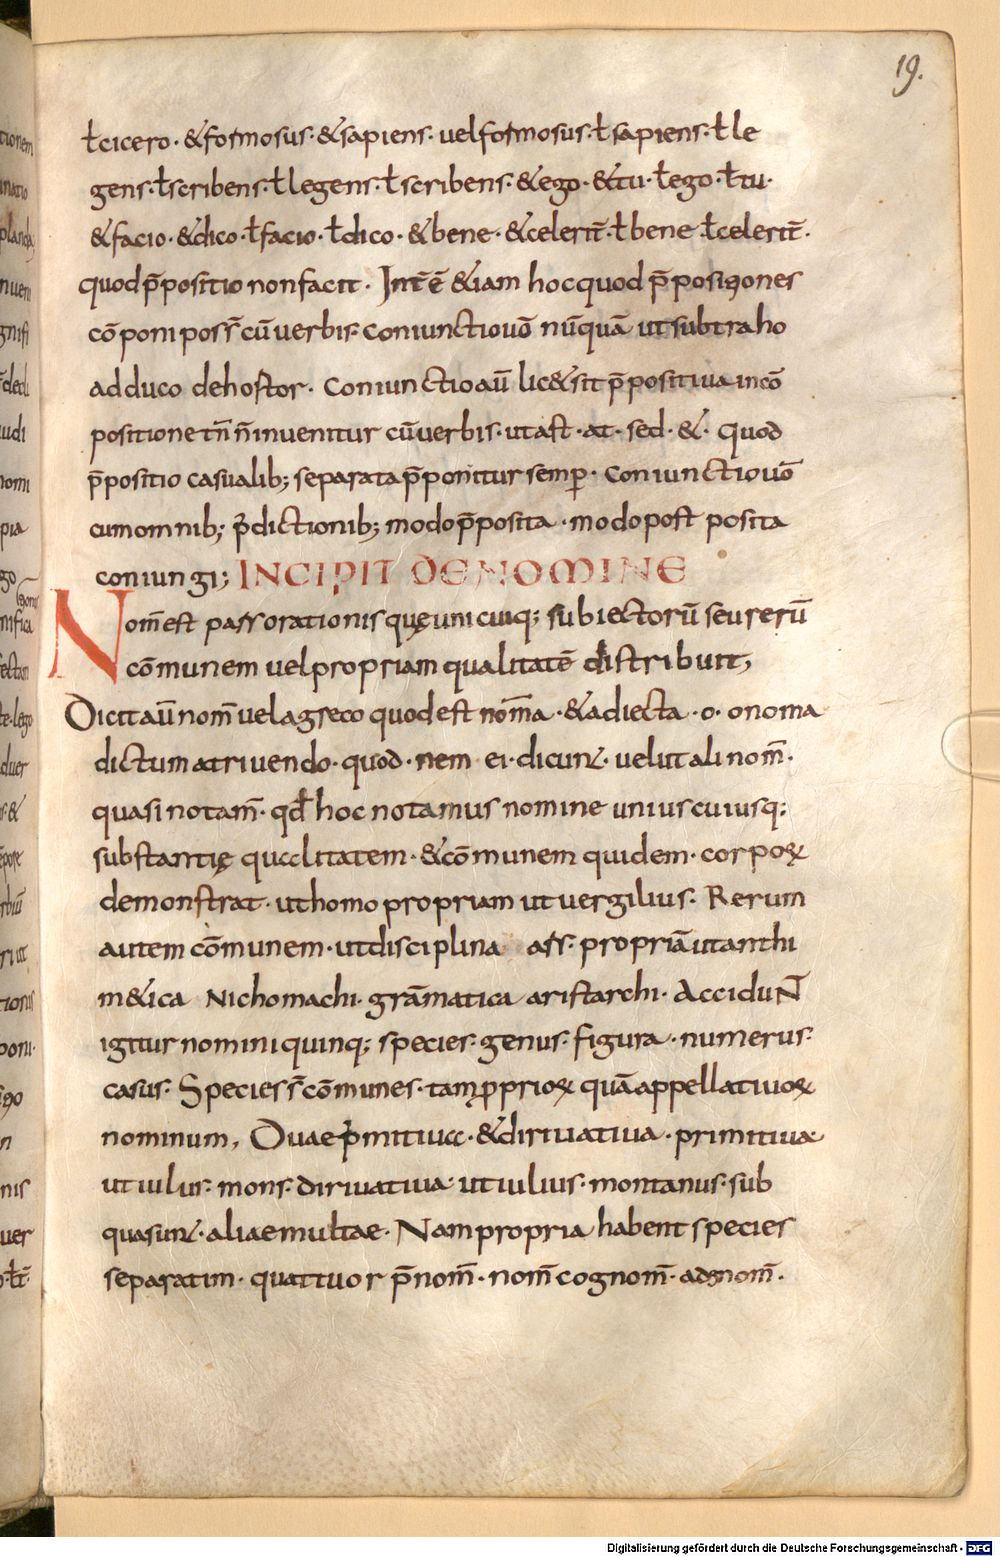 19.
ƚcicero · &formosus · &sapiens · uelformosus · ƚsapiens · ƚ le
gens · ƚscribens · ƚ legens · ƚscribens · &ego · &tu · ƚego · ƚtu ·
&facio · &dico · ƚfacio · ƚdico · &bene · &celerit̄ · ƚ bene · ƚcelerit̄ ·
quod p̄positio non facit · Int̄ ē &iam hoc quod p̄positiones
cō poni poss̄ cū uerbis · coniunctio uō nūquā ut subtraho
adduco dehortor · Coniunctio aū lic& sit p̄positiua in cō
positione tn̄ n̄ inuenitur cū uerbis · ut ast · at · sed · & · Quod
p̄positio casualib; separata p̄ponitur semp̲ · Coniunctio uō
cum omnib; p̄dictionib; modo p̄posita · modo post posita
coniungi; INCIPIT DE NOMINE
Nom̄ est pars orationis quę uni cuiq; subiectorū seu rerū
cōmunem uel propriam qualitatē distribuit;
Dicit aū nom̄ uel a greco quod est nom̄a · &adiecta · o · onoma
dictum a tribuendo · quod · nem ei · dicunt · uelut ali nom̄ ·
quasi notam̄ · qđ hoc notamus nomine unius cuiusq;
substantię qualitatem · &cōmunem quidem · corporꝝ
demonstrat · ut homo propriam ut uergilius · Rerum
autem cōmunem · ut disciplina ars · propriā ut arithi
m&ica Nichomachi · grāmatica aristarchi · AcciduNT
igitur nomini quinq; species · genus · figura · numerus ·
casus · Species s̄ cōmunes · tam ꝓprioꝝ quā appellatiuoꝝ
nominum, Duae p̄mitiua · &diriuatiua · primitiua
ut iulus · mons · diriuatiua · ut iulius · montanus · sub
qua sunt · aliae multae · Nam propria habent species
separatim · quattuor p̄nom̄ · nom̄ cognom̄ · adgnom̄ ·
Digitalisierung gefördert durch die Deutsche Forschungsgemeinschaft - DFG